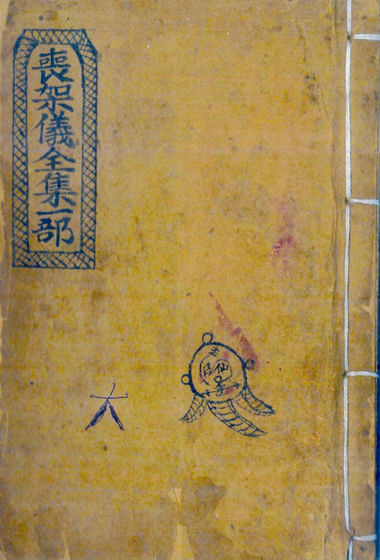 喪架儀全集一部